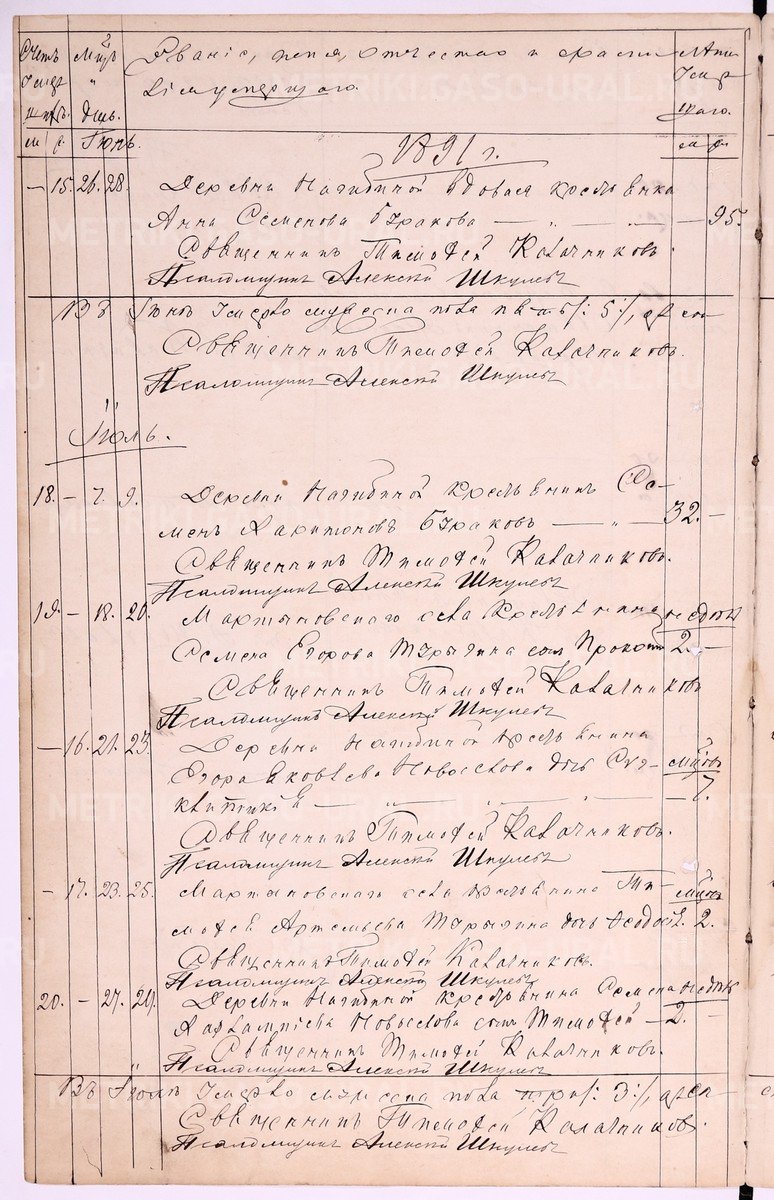 Счетъ Мцъ Званіе, имя, отчество и фамилія Лѣта
умер и умершаго. умер
шихъ. день. шаго.
м ж Іюнь. 1891 г. м ж
— 15. 26. 28. Деревни Нагибиной вдовая крестьянка
Анна Семенова Буракова — „ — „ — 95.
Священникъ Тимофей Калачниковъ.
Псаломщикъ Алексѣй Шкулевъ
Въ Іюнѣ умерло мужеска пола пять /: 5 :/,
Священникъ Тимофей Калачниковъ.
Псаломщикъ Алексѣй Шкулевъ
Іюль.
18. — 7. 9. Деревни Нагибиной крестьянинъ Се-
менъ Харитоновъ Бураковъ — „ — 32. —
Священникъ Тимофей Калачниковъ.
Псаломщикъ Алексѣй Шкулевъ
19. — 18. 20. Мартыновскаго села крестьянина недѣль
Семена Егорова сынъ Прокопій 2. —
Священникъ Тимофей Калачниковъ
Псаломщикъ Алексѣй Шкулевъ
— 16. 21. 23. Деревни Нагибиной крестьянина
Егора Яковлева Новоселова дочь мѣсяцъ
— „ — „ — 7.
Священникъ Тимофей Калачниковъ.
Псаломщикъ Алексѣй Шкулевъ
— 17. 23. 25. Мартыновскаго села крестьянина Ти- мѣсяцъ
мофея Артемьева дочь Ѳеодосія. 2.
Священникъ Тимофей Калачниковъ.
Псаломщикъ Алексѣй Шкулевъ
20. — 27. 29. Деревни Нагибиной крестьянина Семена недѣль
Новоселова сынъ Тимофей — 2. —
Священникъ Тимофей Калачниковъ.
Псаломщикъ Алексѣй Шкулевъ
Въ Іюлѣ умерло мужеска пола три /: 3 :/,
Священникъ Тимофей Калачниковъ.
Псаломщикъ Алексѣй Шкулевъ
METRIKI.GASO-URAL.RU